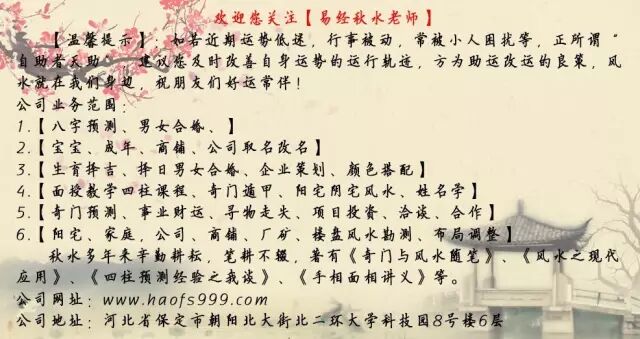 欢迎您关注【易经秋水老师】
【温馨提示】 如若近期运势低迷，行事被动，常被小人困扰等，正所谓“
自助者天助”，建议您及时改善自身运势的运行轨迹，方为助运改运的良策，风
水就在我们身边，祝朋友们好运常伴！
公司业务范围：
1.【八字预测、男女合婚、】
2.【宝宝、成年、商铺、公司取名改名】
3.【生育择吉、择日男女合婚、企业策划、颜色搭配】
4.【面授教学四柱课程、奇门遁甲、阳宅阴宅风水、姓名学】
5.【奇门预测、事业财运、寻物走失、项目投资、洽谈、合作】
6.【阳宅、家庭，公司、商铺、厂矿、楼盘风水勘测、布局调整】
秋水多年来辛勤耕耘，笔耕不辍，著有《奇门与风水随笔》、《风水之现代
应用》、《四柱预测经验之我谈》、《手相面相讲义》等。
公司网址：www.haofs999.com
公司地址：河北省保定市朝阳北大街北二环大学科技园8号楼6层